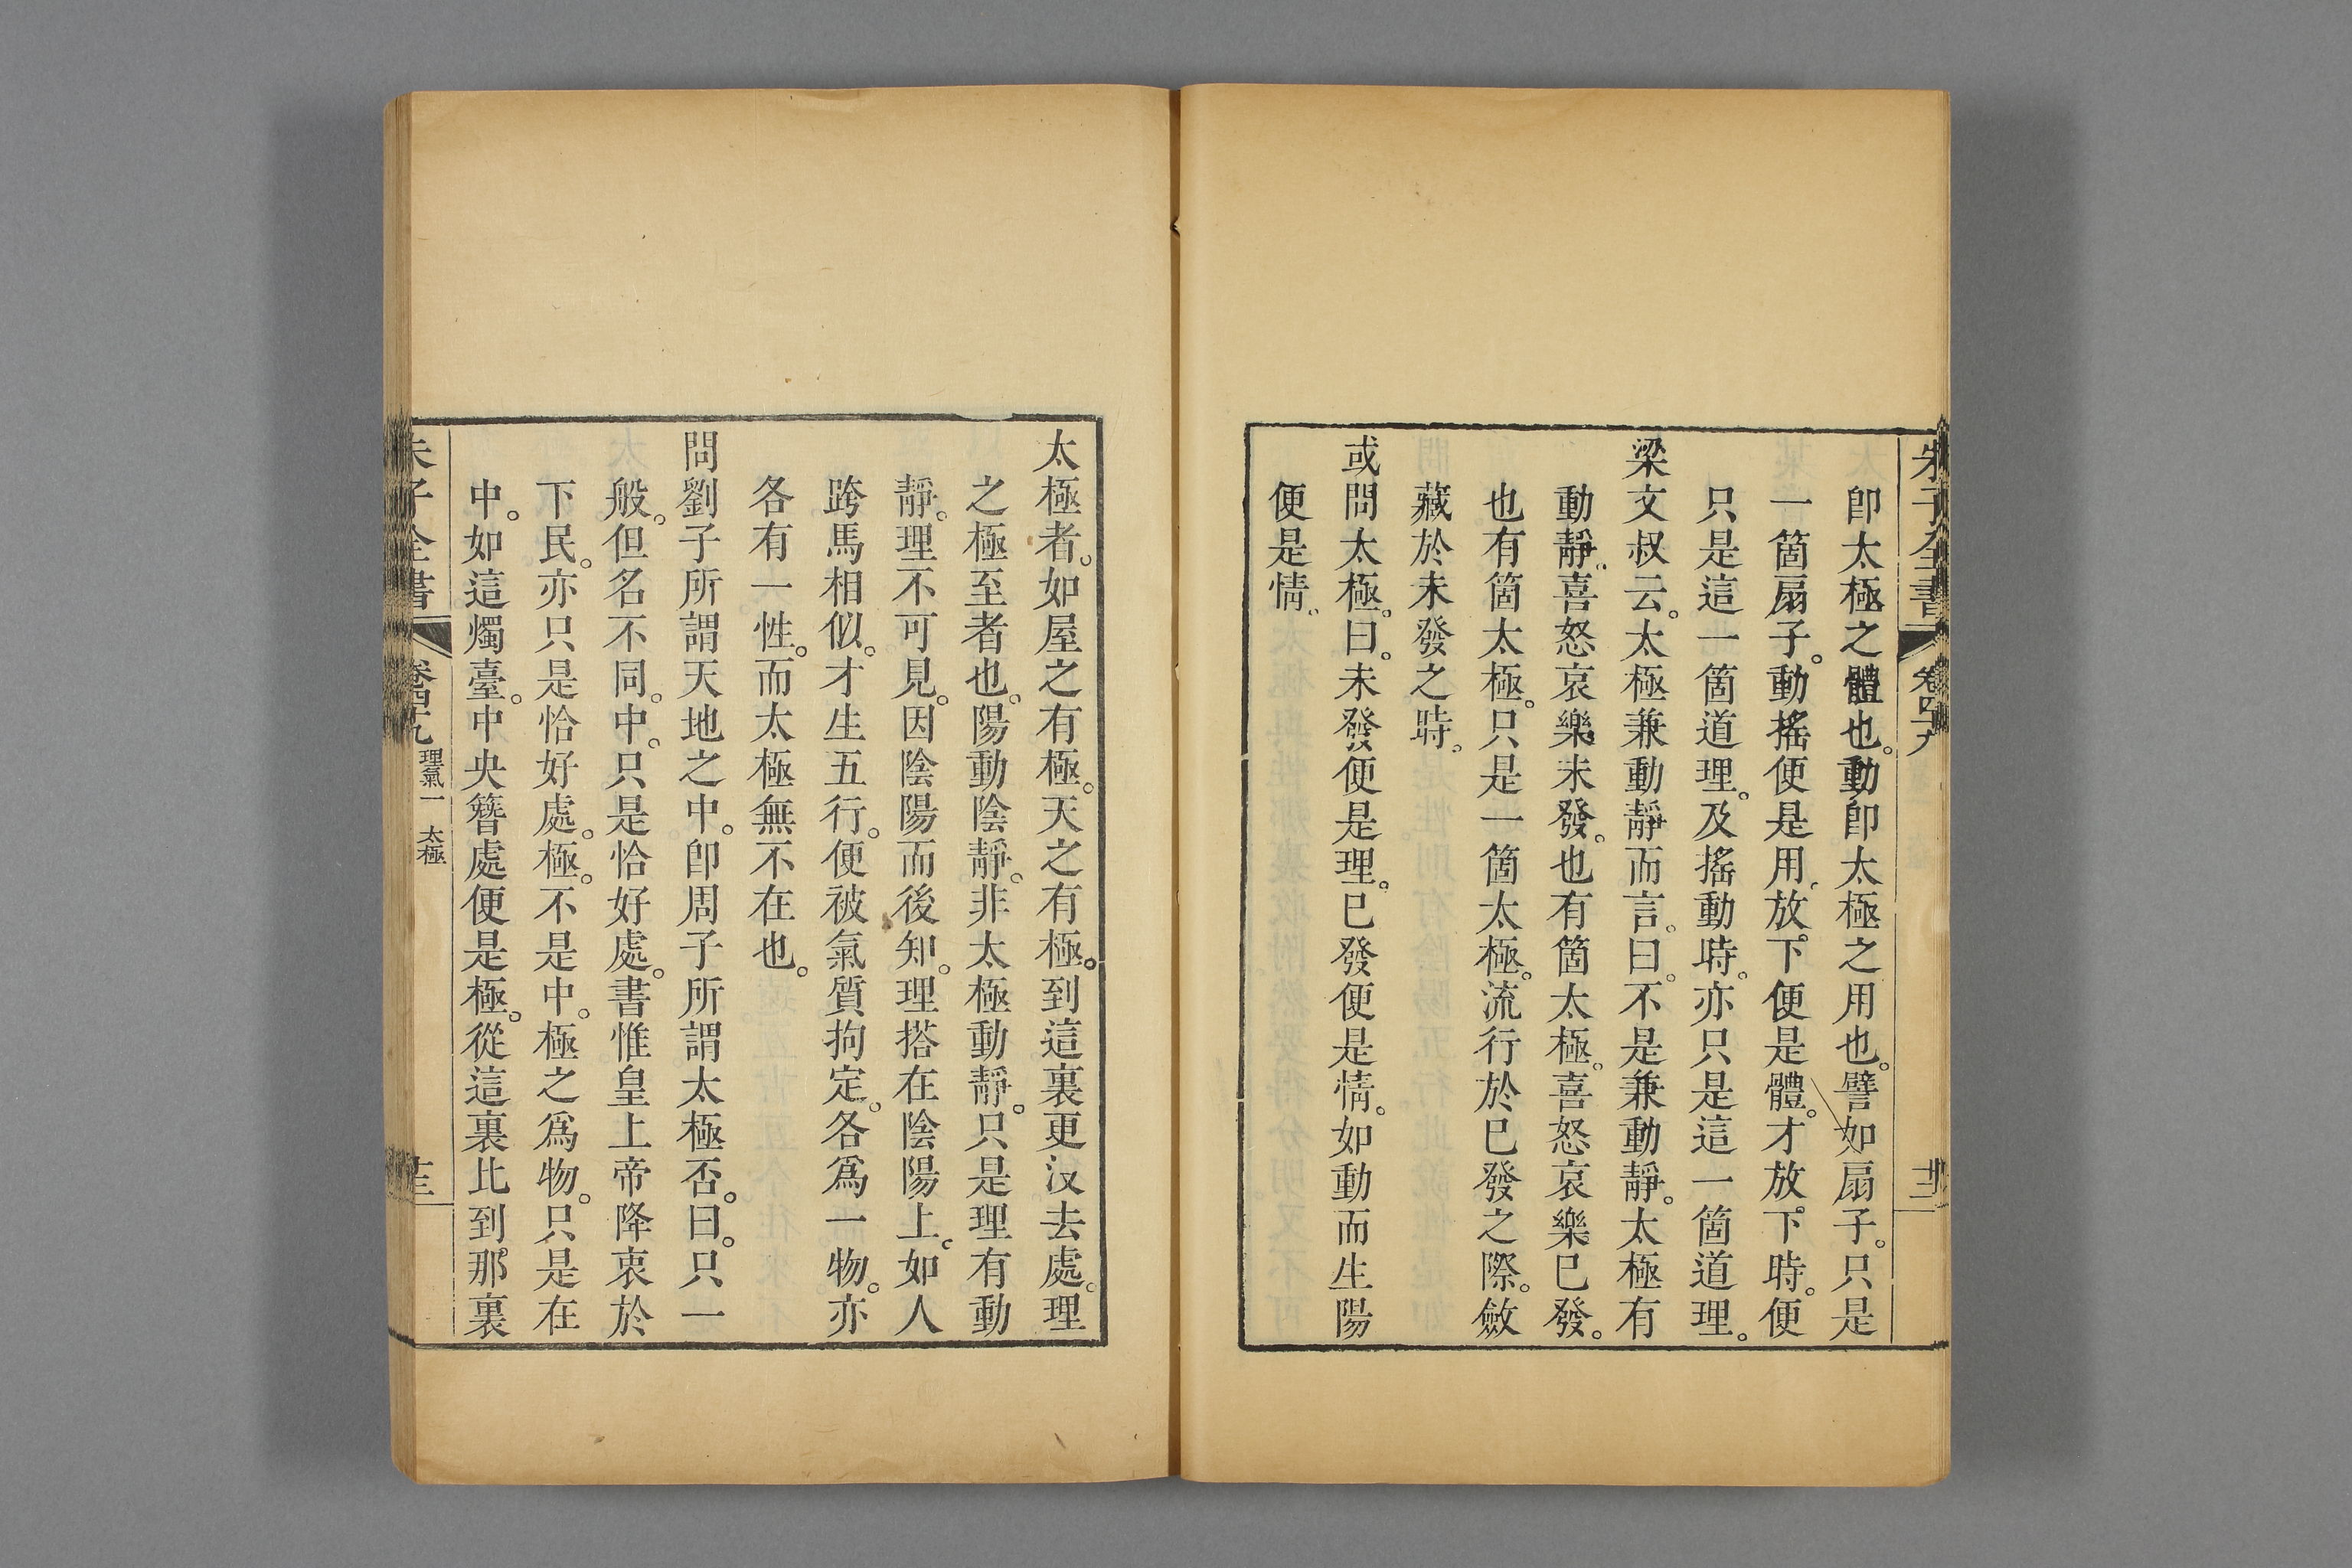 朱子全書 卷四十九 十二
卽太極之體也。動卽太極之用也。譬如扇子。只是
一箇扇子。動搖便是用。放下便是體。才放下時。便
只是這一箇道理。及搖動時。亦只是這一箇道理。
梁文叔云。太極兼動靜而言。曰。不是兼動靜。太極有
動靜。喜怒哀樂未發。也有箇太極。喜怒哀樂已發。
也有箇太極。只是一箇太極。流行於已發之際。斂
藏於未發之時。
或問太極。曰。未發便是理。已發便是情。如動而生陽
便是情。
太極者。如屋之有極。天之有極。到這裏更沒去處。理
之極至者也。陽動陰靜。非太極動靜。只是理有動
靜。理不可見。因陰陽而後知。理搭在陰陽上。如人
跨馬相似。才生五行。便被氣質拘定。各爲一物。亦
各有一性。而太極無不在也。
問劉子所謂天地之中。卽周子所謂太極否。曰。只一
般。但名不同。中。只是恰好處。書惟皇上帝降衷於
下民。亦只是恰好處。極。不是中。極之爲物。只是在
中。如這燭臺。中央簪處便是極。從這裏比到那裏
朱子全書 卷四十九 理氣一 太極 十三